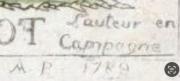 OT
L'auteur en
Campagne
M P 1789